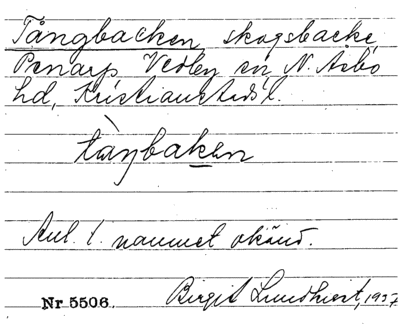 Tångbacken, skogsbacke
Penarp Vedby sn N. Åsbo
hd, Kristianstads l.
tàŋbaken
Anl. t. namnet okänd.
Nr 5506. Birgit Lundkvist, 1937